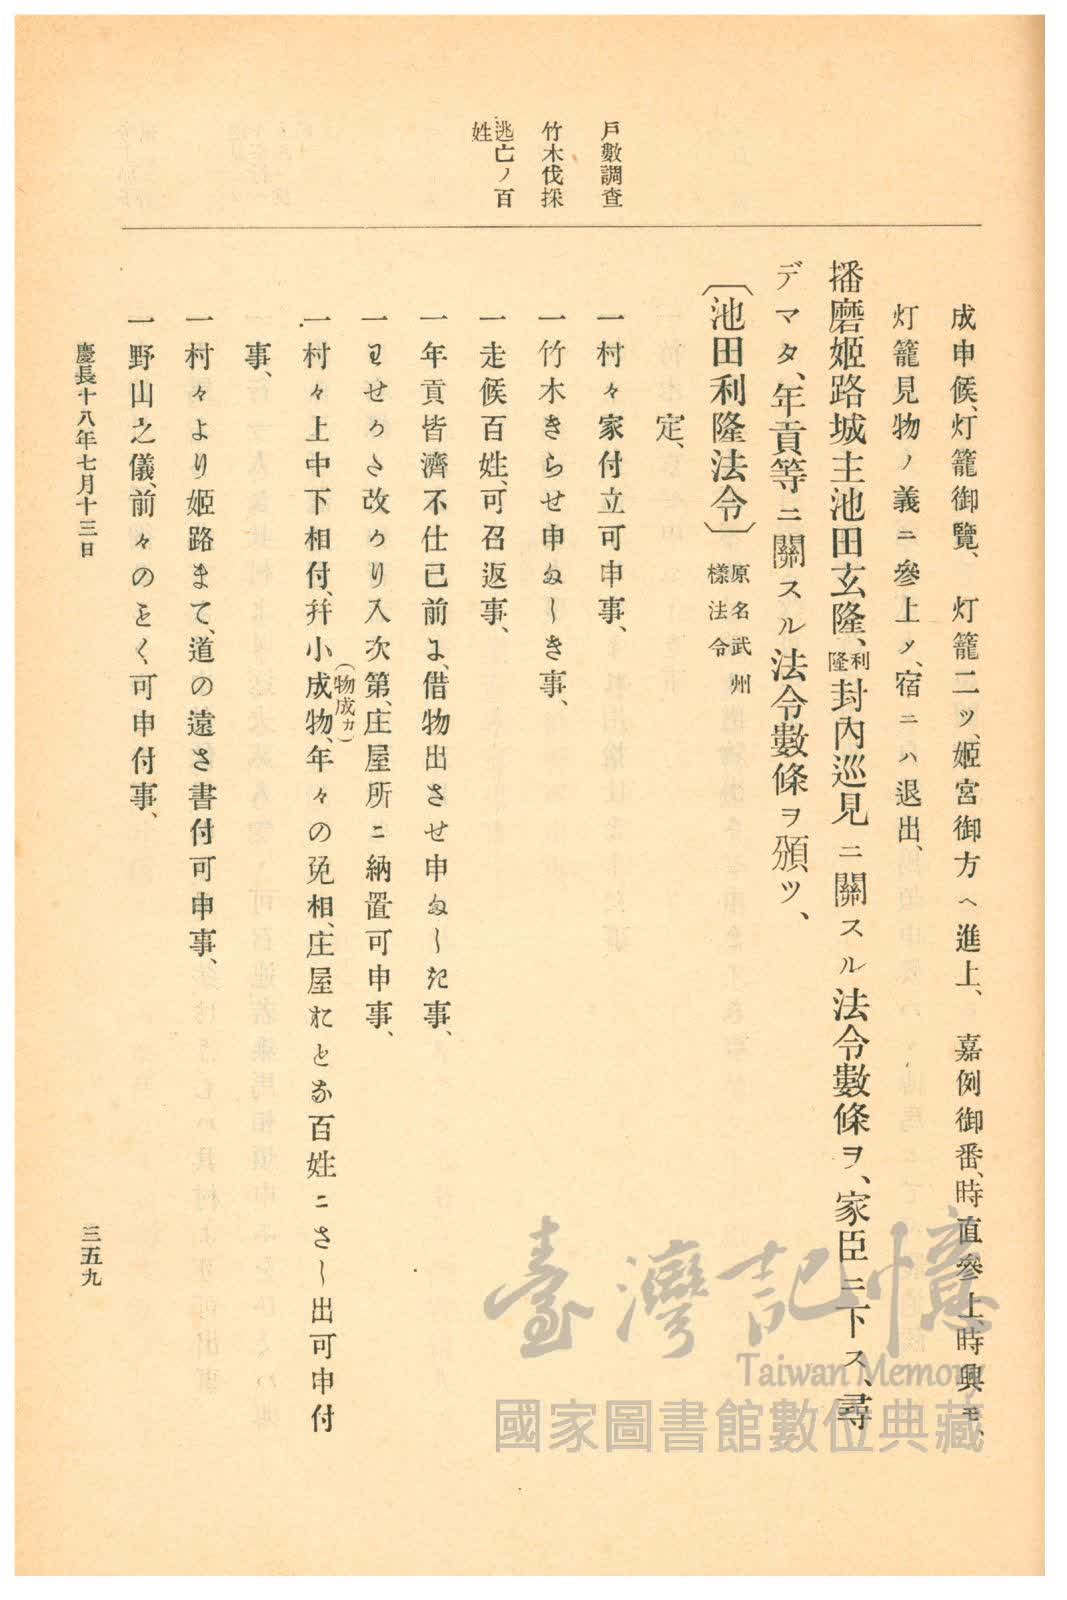 戶數調査
竹木伐採
逃亡ノ百
姓
成申候、灯籠御覽、灯籠二ツ、姫宮御方ヘ進上、嘉例御番、時直參上、時興モ、
灯籠見物ノ義ニ參上〆、宿ニハ退出、
播磨姫路城主池田玄隆、利隆封內巡見ニ關スル法令數條ヲ、家臣ニ下ス、尋
デマタ、年貢等ニ關スル法令數條ヲ頒ツ、
〔池田利隆法令〕原名武州樣法令
定、
一村々家付立可申事、
一竹木きらせ申ましき事、
一走候百姓、可召返事、
一年貢皆濟不仕已前よ、借物出させ申ましき事、
一わせかた改かり入次第、庄屋所ニ納置可申事、
一村々上中下相付、幷小成物、(物成カ)年々の免相、庄屋おとな百姓ニさし出可申付
事、
一村々より姫路まて、道の遠さ書付可申事、
一野山之儀、前々のことく可申付事、
慶長十八年七月十三日
三五九
臺灣記憶
Taiwan Memory
國家圖書館數位典藏